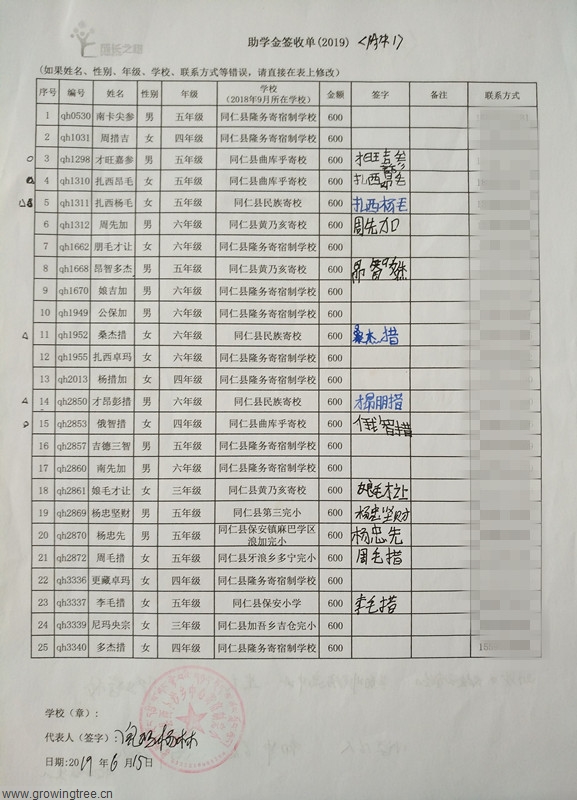 成长之路
助学金签收单(2019) <附件1>
(如果姓名、性别、年级、学校、联系方式等错误，请直接在表上修改)
序号 编号 姓名 性别 年级 学校 (2018年9月所在学校) 金额 签字 备注 联系方式
1 qh0530 南卡尖参 男 五年级 同仁县隆务寄宿制学校 600
2 qh1031 周措吉 女 四年级 同仁县隆务寄宿制学校 600
3 qh1298 才旺嘉参 男 五年级 同仁县曲库乎寄校 600 才旺嘉参
4 qh1310 扎西昂毛 女 五年级 同仁县曲库乎寄校 600 扎西昂毛
5 qh1311 扎西杨毛 女 五年级 同仁县民族寄校 600 扎西杨毛
6 qh1312 周先加 男 六年级 同仁县黄乃亥寄校 600 周先加
7 qh1662 朋毛才让 女 六年级 同仁县隆务寄宿制学校 600
8 qh1668 昂智多杰 男 五年级 同仁县黄乃亥寄校 600 昂智多杰
9 qh1670 娘吉加 男 六年级 同仁县隆务寄宿制学校 600
10 qh1949 公保加 男 六年级 同仁县隆务寄宿制学校 600
11 qh1952 桑杰措 女 六年级 同仁县民族寄校 600 桑杰措
12 qh1955 扎西卓玛 女 六年级 同仁县隆务寄宿制学校 600
13 qh2013 杨措加 女 四年级 同仁县隆务寄宿制学校 600
14 qh2850 才昂彭措 男 六年级 同仁县民族寄校 600 才昂朋措
15 qh2853 俄智措 女 四年级 同仁县曲库乎寄校 600 俄智措
16 qh2857 吉德三智 男 五年级 同仁县隆务寄宿制学校 600
17 qh2860 南先加 男 六年级 同仁县隆务寄宿制学校 600
18 qh2861 娘毛才让 女 三年级 同仁县黄乃亥寄校 600 娘毛才让
19 qh2869 杨忠坚财 男 五年级 同仁县第三完小 600 杨忠坚财
20 qh2870 杨忠先 男 五年级 同仁县保安镇麻巴学区浪加完小 600 杨忠先
21 qh2872 周毛措 女 五年级 同仁县牙浪乡多宁完小 600 周毛措
22 qh3336 更藏卓玛 女 四年级 同仁县隆务寄宿制学校 600
23 qh3337 李毛措 女 五年级 同仁县保安小学 600 李毛措
24 qh3339 尼玛央宗 女 三年级 同仁县加吾乡吉仓完小 600
25 qh3340 多杰措 女 四年级 同仁县隆务寄宿制学校 600
学校（章）:
代表人（签字）:
日期:2019 年 6 月 15日
www.growingtree.cn